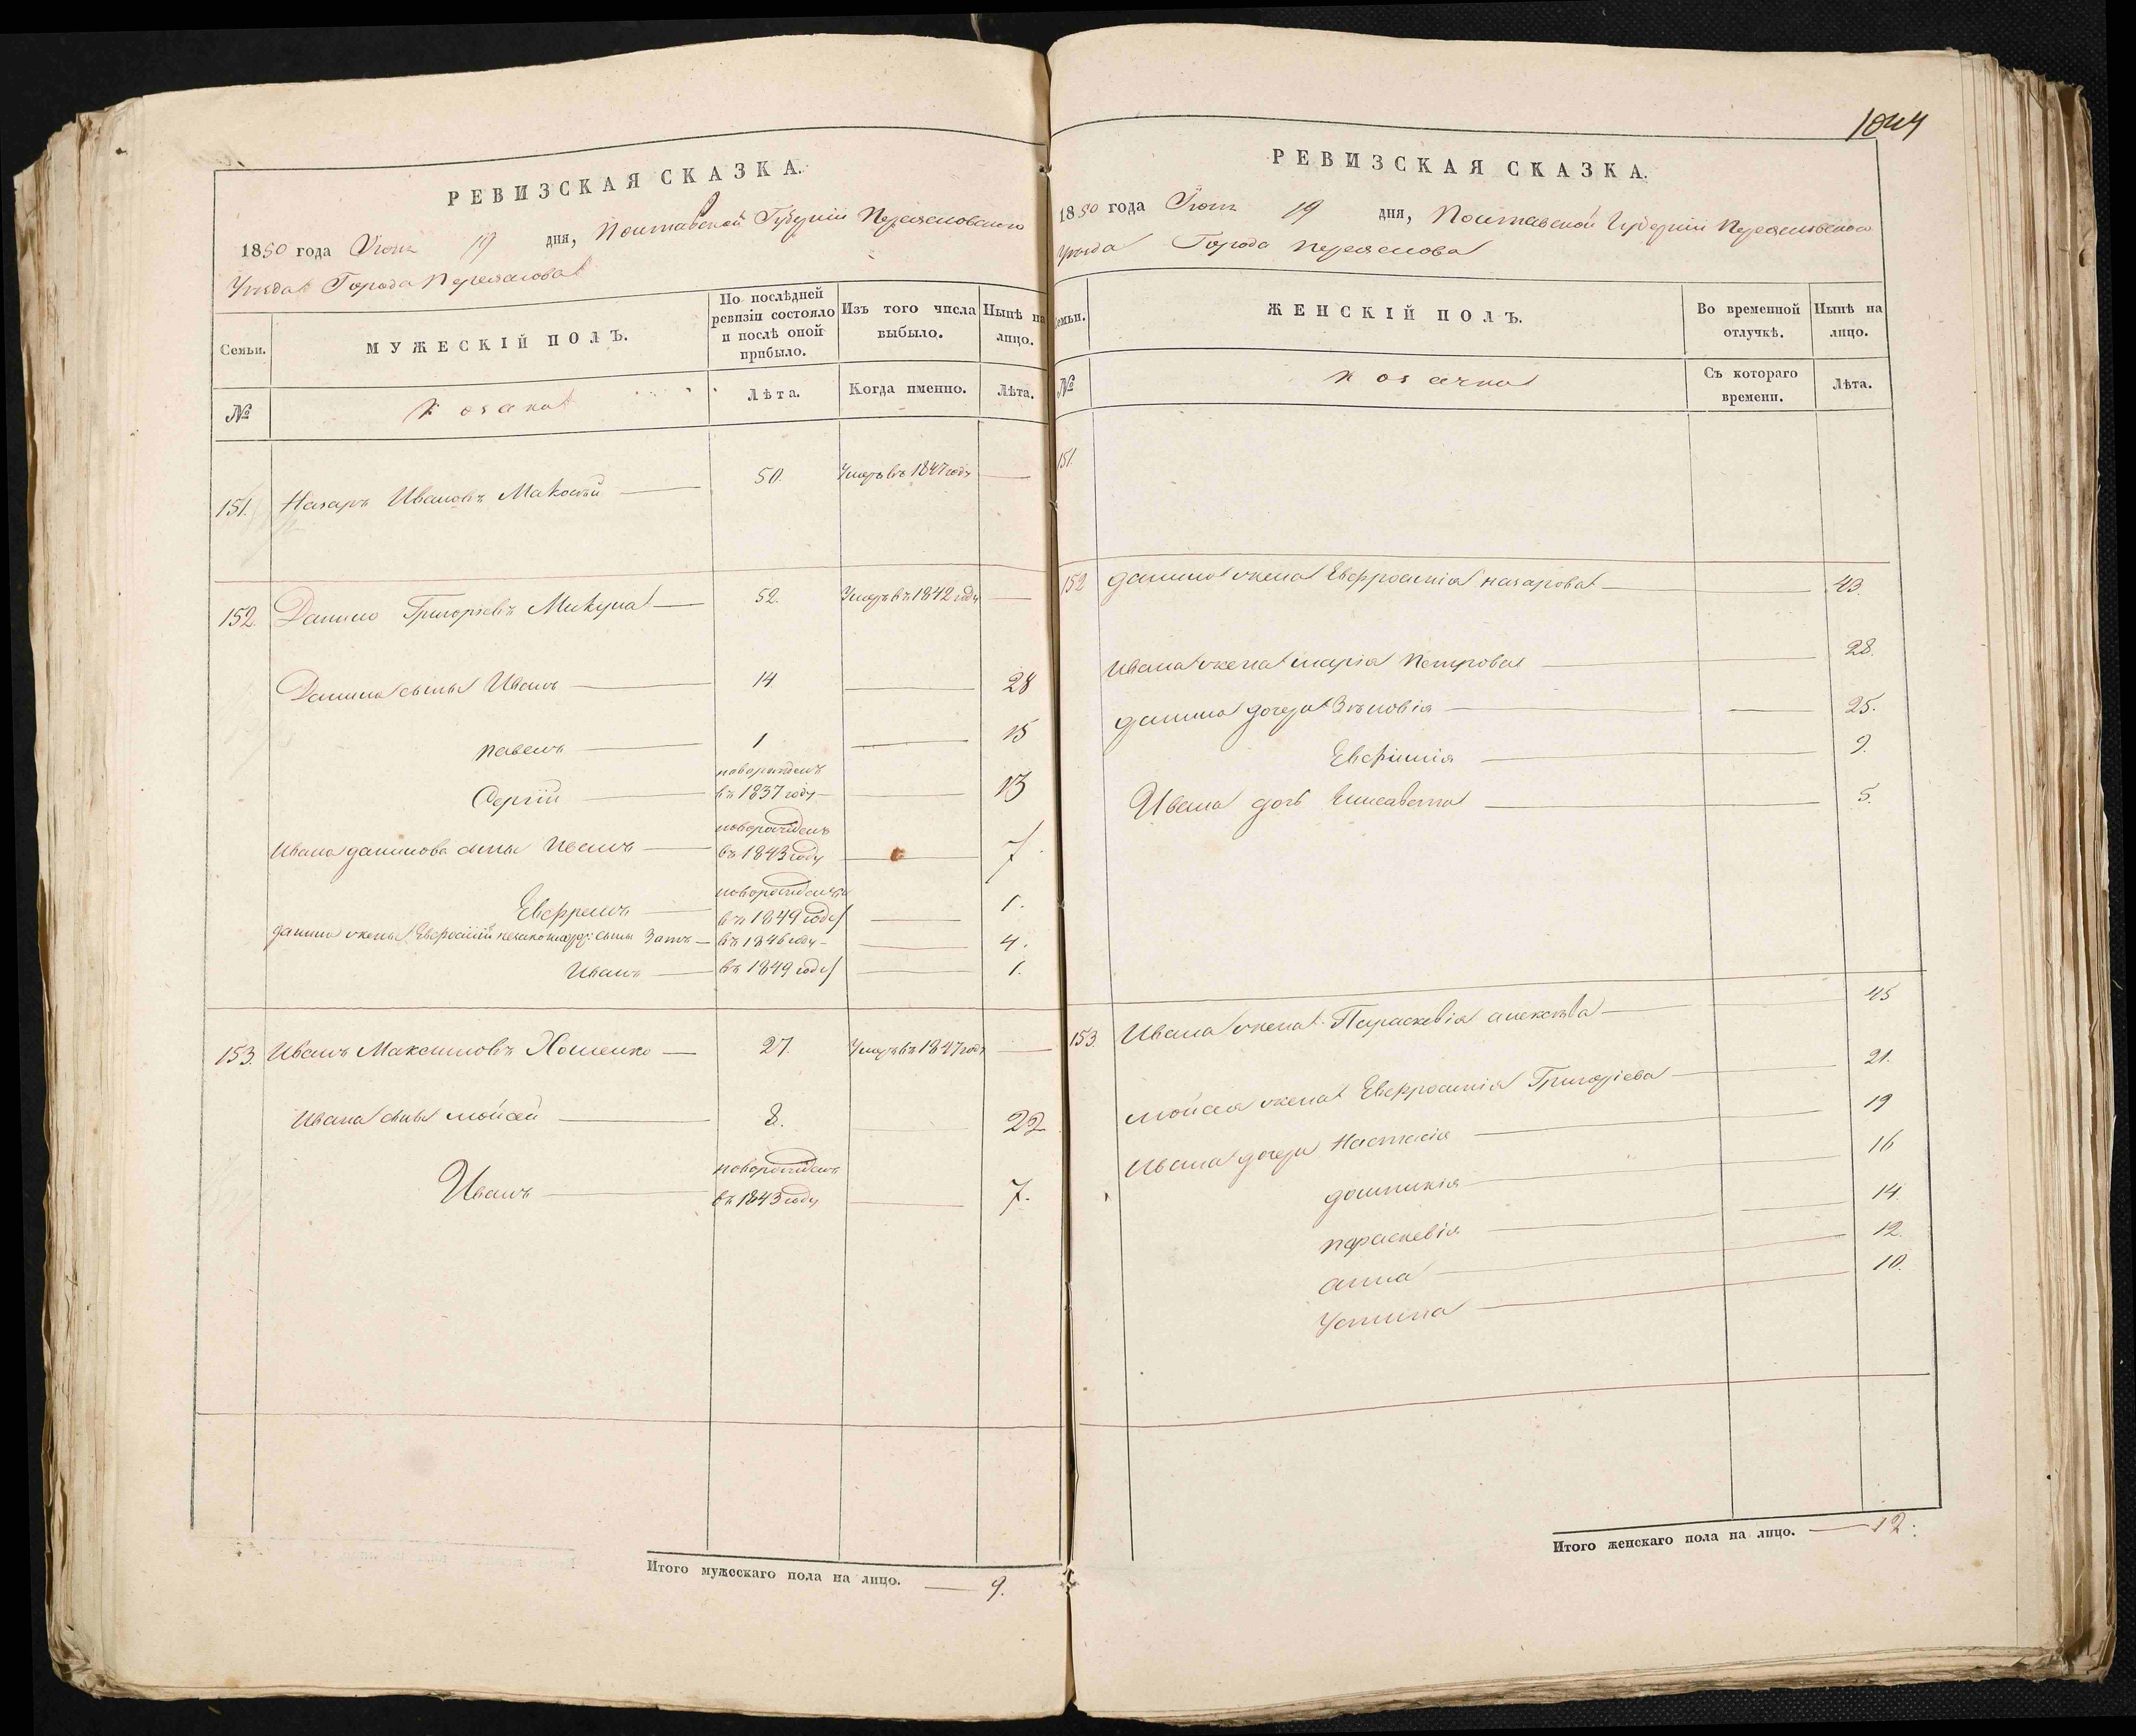 РЕВИЗСКАЯ СКАЗКА.
1850 года Іюня 19 дня, Полтавской Губерніи Переяславскаго
Уѣзда Города Переяслова
Семьи.
МУЖЕСКІЙ ПОЛЪ.
По послѣдней ревизіи состояло и послѣ оной прибыло.
Изъ того числа выбыло.
Нынѣ на лицо.
№
Козака
Лѣта.
Когда именно.
Лѣта.
151. Назаръ Ивановъ 50. Умеръ въ 1847 году
152. Данило Григорьевъ Микула 52. Умеръ въ 1842 году
Данила сыны Иванъ 14. 28
Павелъ 1 15
Сергій новорожденъ въ 1837 году 13
Ивана Данилова сыны Иванъ новорожденъ въ 1843 году 7.
Евфремъ новорожденъ въ 1849 году 1.
Данила жены Евфросиніи сыны въ 1846 году 4.
Иванъ въ 1849 году 1.
153. Иванъ Максимовъ Хоменко 27. Умеръ въ 1847 году
Ивана сыны Мойсей 8. 22
Иванъ новорожденъ въ 1843 году 7.
Итого мужескаго пола на лицо. 9.
1044
РЕВИЗСКАЯ СКАЗКА.
1850 года Іюня 19 дня, Полтавской Губерніи Переяславскаго
Уѣзда Города Переяслова
Семьи.
ЖЕНСКІЙ ПОЛЪ.
Во временной отлучкѣ.
Нынѣ на лицо.
№
Козачка
Съ котораго времени.
Лѣта.
151.
152 Данила жена Евфросинія Назарова 43.
Ивана жена Марія Петрова 28.
Данила дочери Зѣновія 25.
Евфимія 9.
Ивана дочь Елисавета 5.
153. Ивана жена Параскевія Алексѣева 45
Мойсея жена Евфросинія Григоріева 21.
Ивана дочери Настасія 19
Домникія 16
Параскевія 14
Анна 12.
Устина 10.
Итого женскаго пола на лицо. 12.